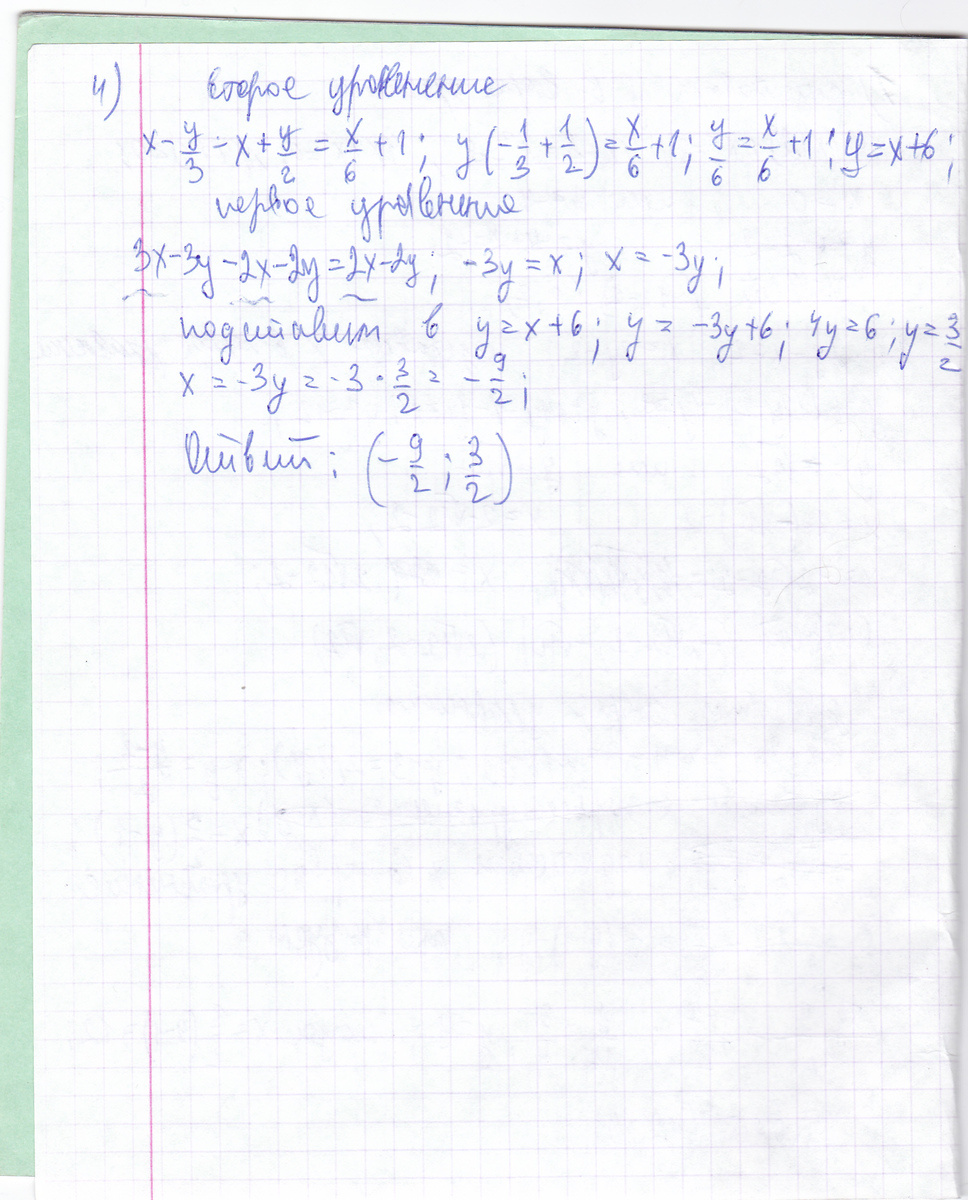 4) второе уравнение
x - y/3 - x + y/2 = x/6 + 1; y(-1/3 + 1/2) = x/6 + 1; y/6 = x/6 + 1; y = x+6;
первое уравнение
3x-3y-2x-2y=2x-2y; -3y=x; x=-3y;
подставим в y=x+6; y=-3y+6; 4y=6; y=3/2
x=-3y=-3·3/2=-9/2;
Ответ: (-9/2; 3/2)